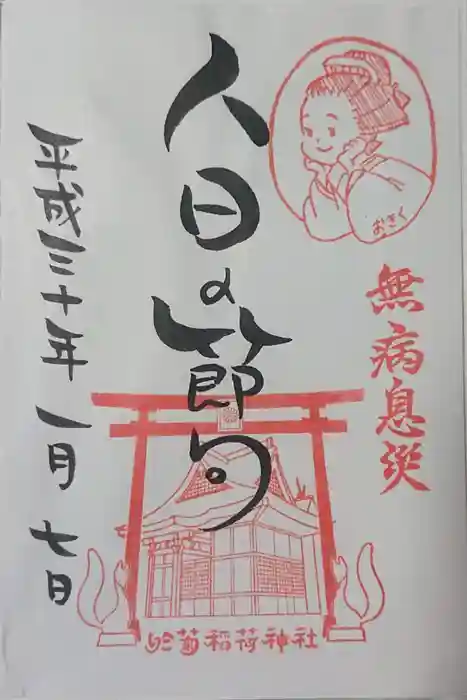 おきく
無病息災
人日の節句
平成三十年一月七日
於菊稲荷神社